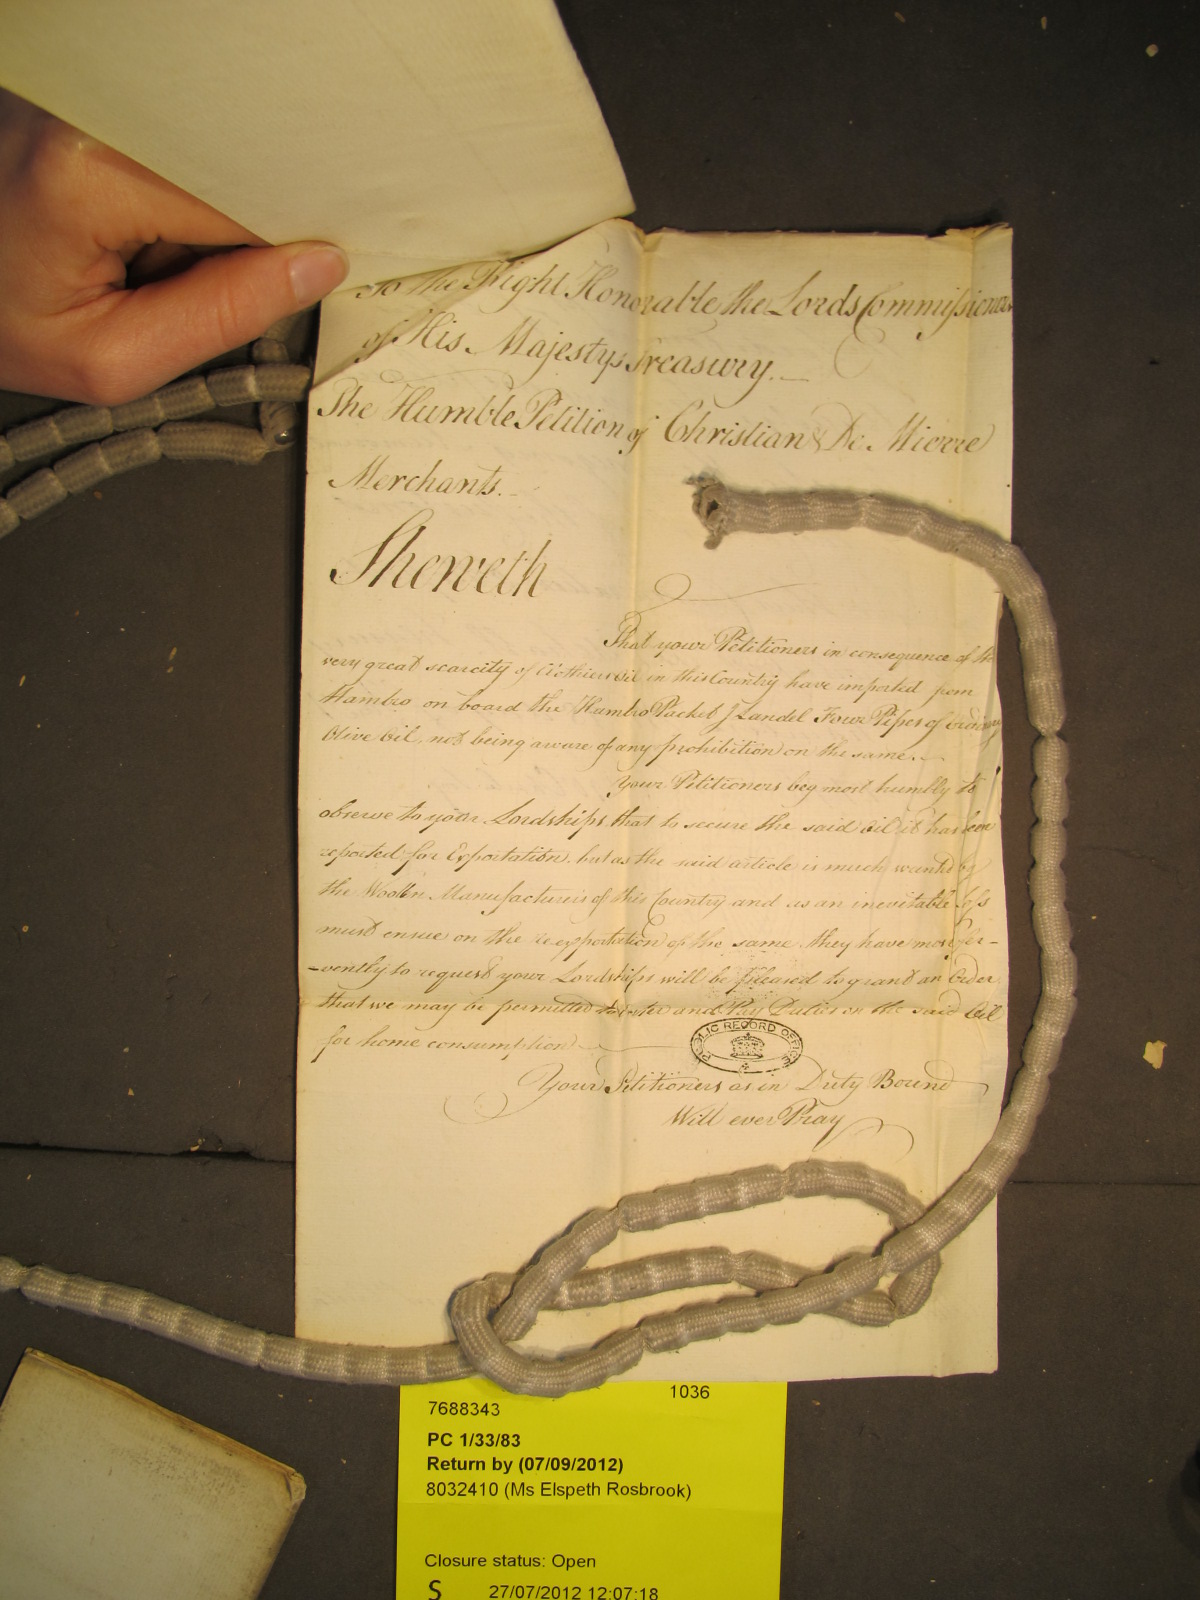 To the Right Honorable the Lords Commissioners
of His Majestys Treasury.
The Humble Petition of Christian & De Mierre
Merchants.
Sheweth
That your Petitioners in consequence of the
very great scarcity of Clothiers oil in this Country have imported from
Hambro on board the Hambro Packet J Landel Four Pipes of ordinary
Olive Oil, not being aware of any prohibition on the same.
Your Petitioners beg most humbly to
observe to your Lordships that to secure the said Oil it has been
reported for Exportation, but as the said article is much wanted by
the Woollen Manufacturers of this Country and as an inevitable loss
must ensue on the re-exportation of the same they have most fer-
-vently to request your Lordships will be pleased to grant an Order
that we may be permitted to enter and Pay Duties on the said Oil
for home consumption
PUBLIC RECORD OFFICE
Your Petitioners as in Duty Bound
Will ever Pray
1036
7688343
PC 1/33/83
Return by (07/09/2012)
8032410 (Ms Elspeth Rosbrook)
Closure status: Open
S 27/07/2012 12:07:18